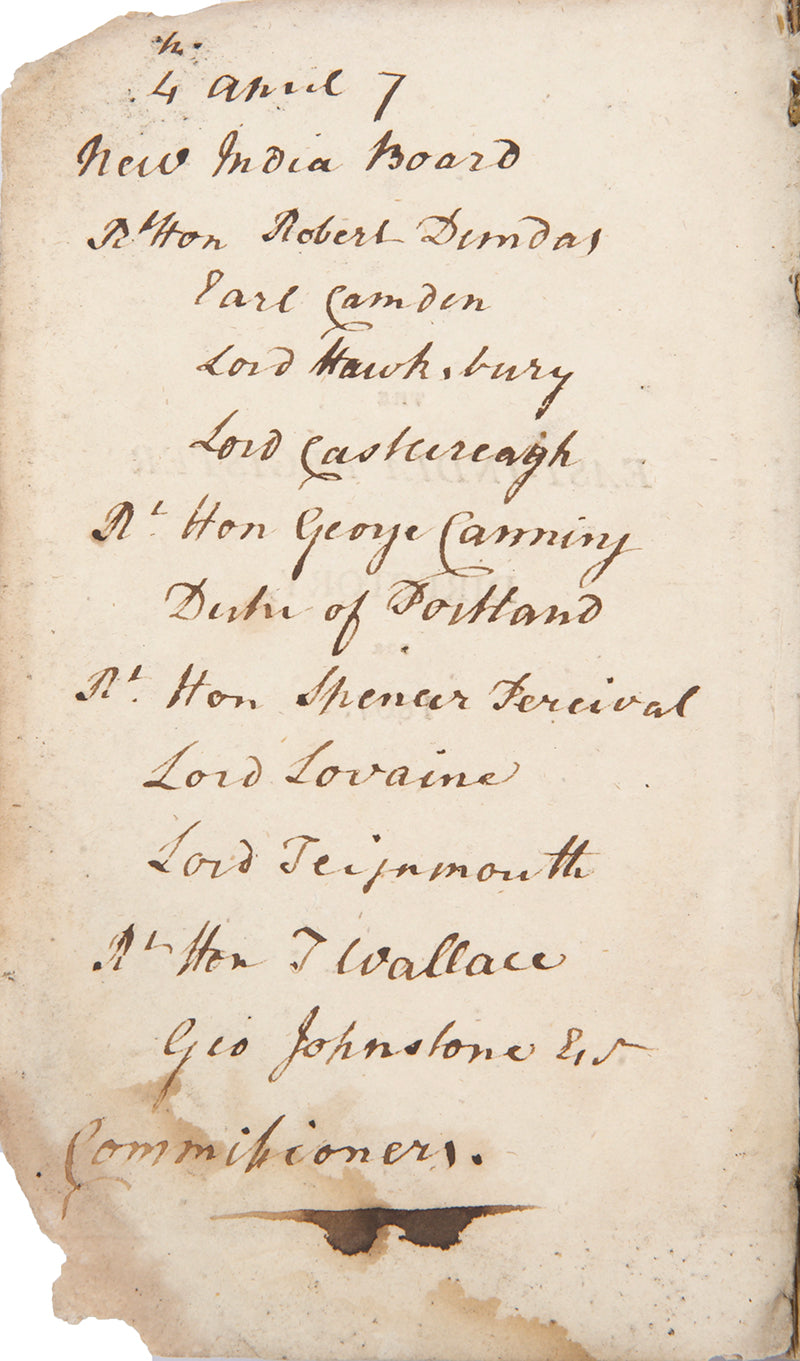 4th. April 7
New India Board
Rt Hon Robert Dundas
Earl Camden
Lord Hawksbury
Lord Castlereagh
Rt. Hon George Canning
Duke of Portland
Rt. Hon Spencer Percival
Lord Lovaine
Lord Teignmouth
Rt Hon T Wallace
Geo Johnstone Esr
Commissioners.